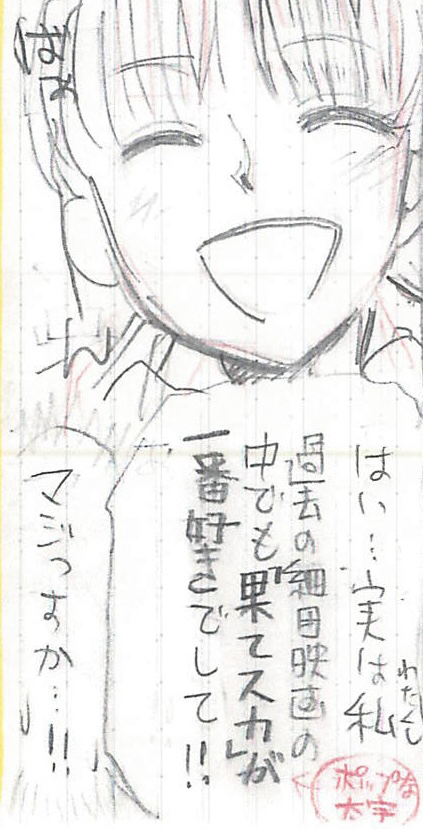 はい…実は私
わたくし
過去の細田映画の
中でも『果てスカ』が
一番好きでして!!
マジっすか…!!
ポップな
太字